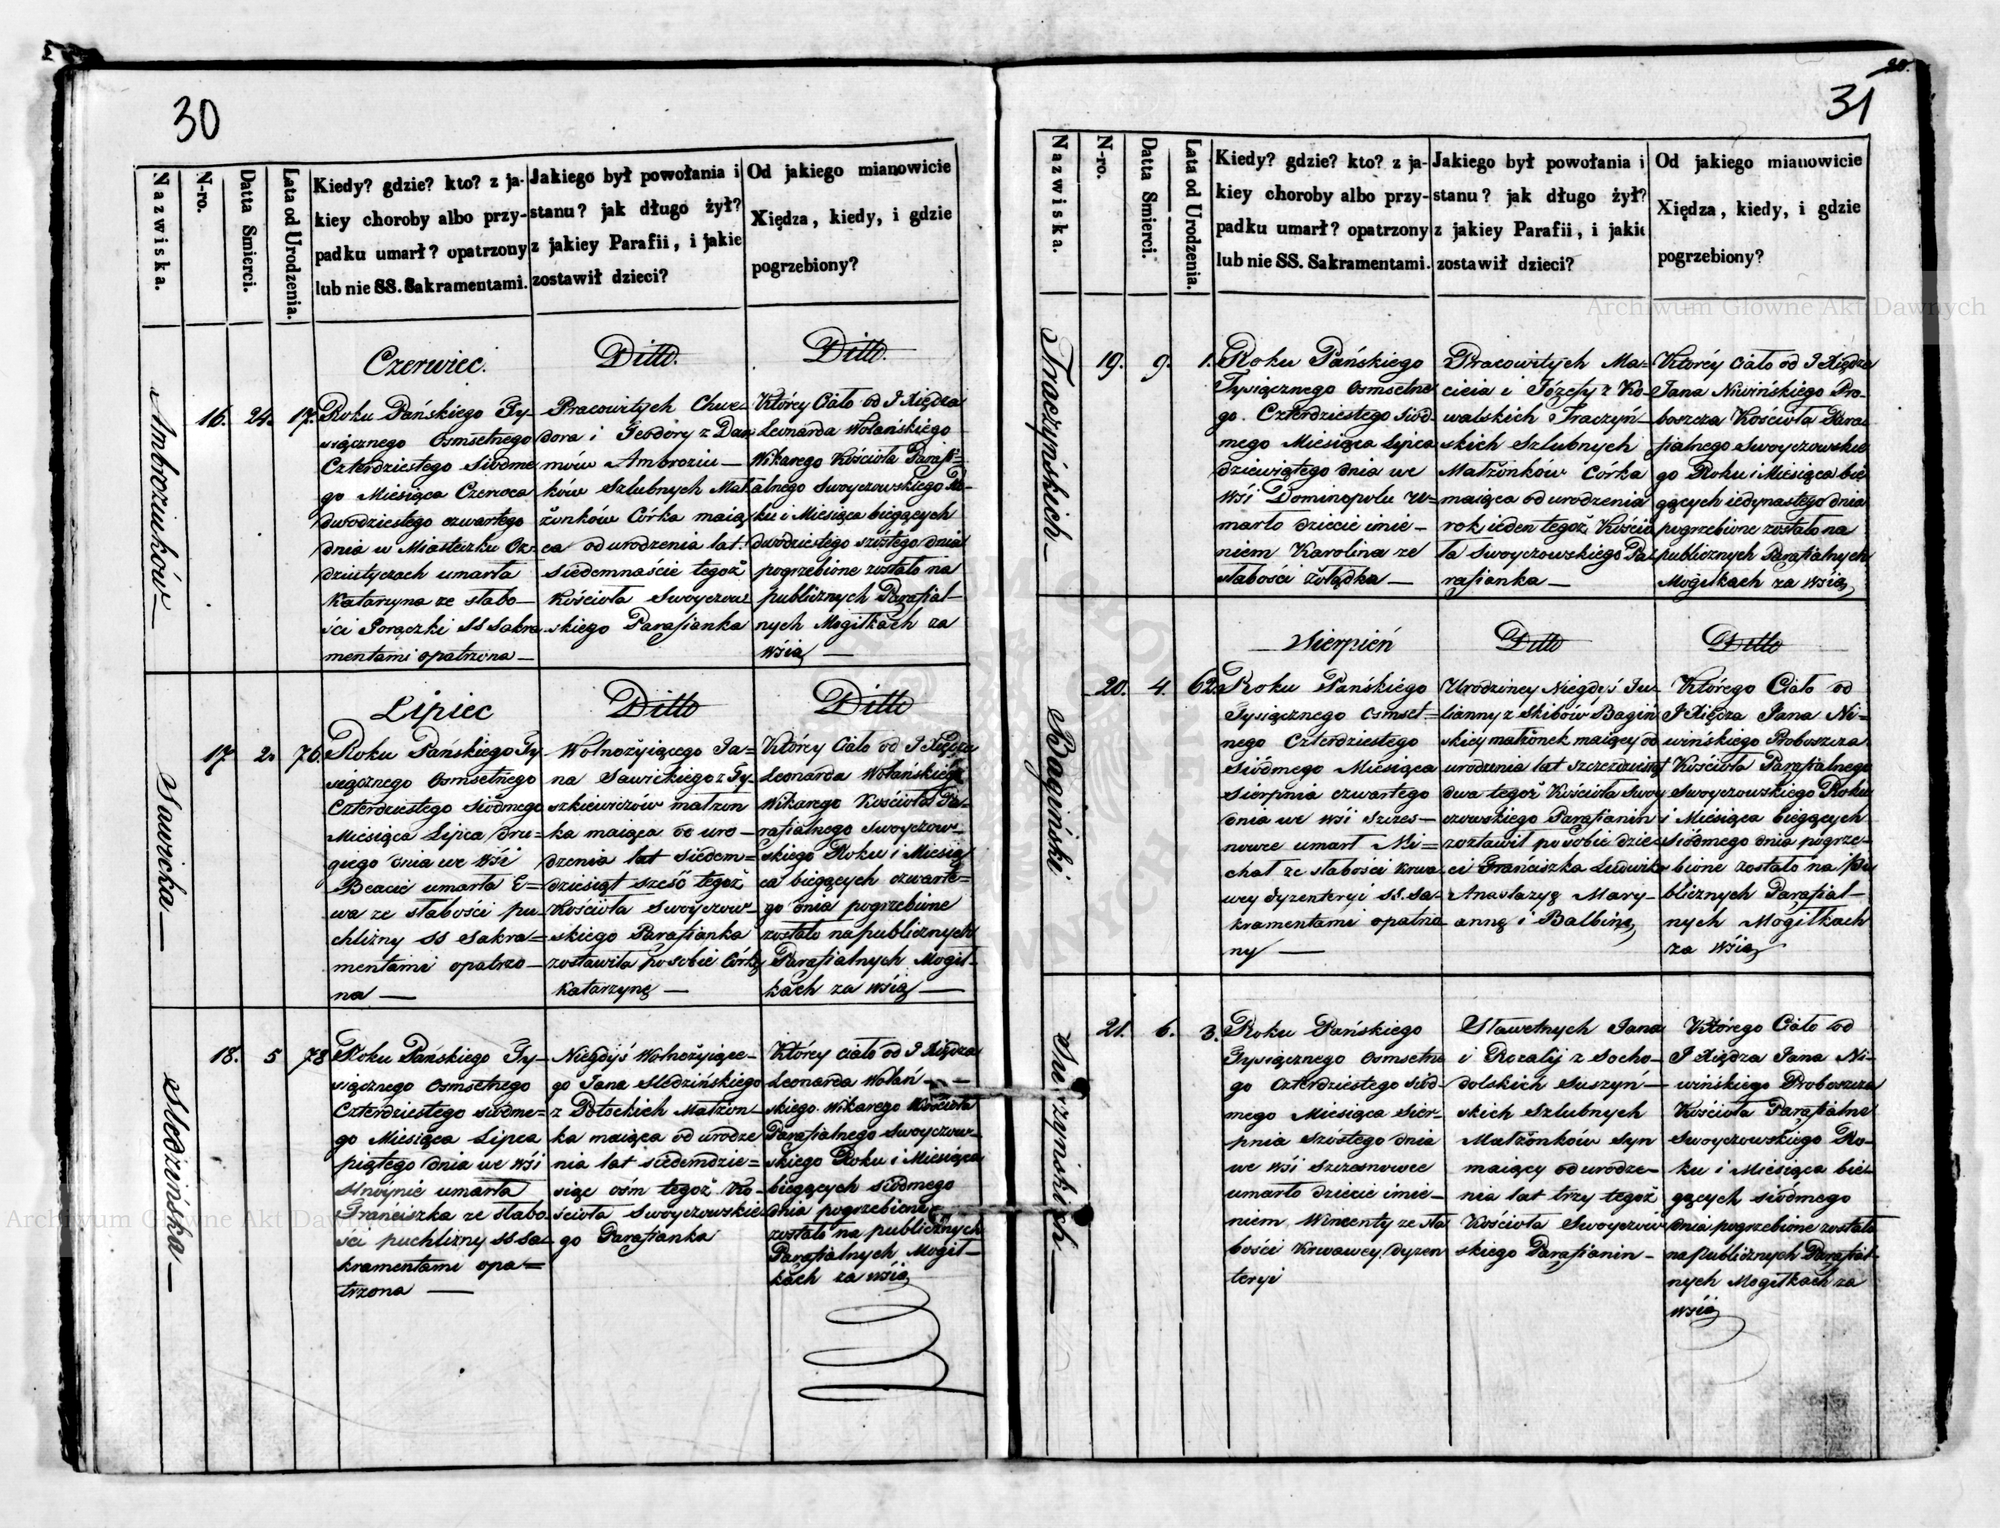 30
Nazwiska.
N-ro.
Data Smierci.
Lata od Urodzenia.
Kiedy? gdzie? kto? z ja-
kiey choroby albo przy-
padku umarł? opatrzony
lub nie SS. Sakramentami.
Jakiego był powołania i
stanu? jak długo żył?
z jakiey Parafii, i jakie
zostawił dzieci?
Od jakiego mianowicie
Xiędza, kiedy, i gdzie
pogrzebiony?
Ambroziuków
16. 24. 17.
Czerwiec.
Roku Pańskiego Ty-
siącznego Osmsetnego
Czterdziestego Siódme
go Miesiąca Czerwca
dwodziestego czwartego
dnia w Miasteczku
umarła
Katarzyna ze słabo-
ści Gorączki SS Sakra-
mentami opatrzona
Ditto.
Pracowitych
dora i Teodory z
mów Ambroziu-
ków Szlubnych Mał
żonków Córka maią
ca od urodzenia lat
siedemnaście tegoż
Kościoła Swoyczow
skiego Parafianka
Ditto.
Którey Ciało od J Xiędza
Leonarda Wolańskiego
Wikarego Kościoła Parafi-
alnego Swoyczowskiego Ro-
ku i Miesiąca biegących
dwodziestego szóstego dnia
pogrzebione zostało na
publicznych Parafial-
nych Mogiłkach za
wsią
Sawicka
17 2. 76.
Lipiec
Roku Pańskiego Ty
siącznego Osmsetnego
Czterdziestego Siódmego
Miesiąca Lipca dru-
giego dnia we wsi
umarła E=
wa ze słabości pu
chliny SS Sakra=
mentami opatrzo-
na
Ditto
Wolnożyiącego Ja=
na Sawickiego z Ty
szkiewiczów małżon
ka maiąca od uro-
dzenia lat siedem=
dziesiąt sześć tegoż
Kościoła Swoyczow-
skiego Parafianka
zostawiła po sobie Córkę
Katarzynę
Ditto
Którey Ciało od J Xiędza
Leonarda Wolańskiego
Wikarego Kościoła Pa-
rafialnego Swoyczow-
skiego Roku i Miesią
ca biegących czwarte=
go dnia pogrzebione
zostało na publicznych
Parafialnych Mogił-
kach za wsią
Sledzińska
18. 5 78
Roku Pańskiego Ty-
siącznego Osmsetnego
Czterdziestego siódme=
go Miesiąca Lipca
piątego dnia we wsi
umarła
Franciszka ze słabo
ści puchliny SS Sa-
kramentami opa=
trzona
Niegdyś Wolnożyiące-
go Jana Sledzińskiego
z Potockich Małżon-
ka maiąca od urodze
nia lat siedemdzie=
siąc ośm tegoż Ko-
ścioła Swoyczowskie
go Parafianka
Którey ciało od J Xiędza
Leonarda Wolań-
skiego Wikarego Kościoła
Parafialnego Swoyczow-
skiego Roku i Miesiąca
biegących siódmego
dnia pogrzebione
zostało na publicznych
Parafialnych Mogił-
kach za wsią
20.
31
Nazwiska.
N-ro.
Data Smierci.
Lata od Urodzenia.
Kiedy? gdzie? kto? z ja-
kiey choroby albo przy-
padku umarł? opatrzony
lub nie SS. Sakramentami.
Jakiego był powołania i
stanu? jak długo żył?
z jakiey Parafii, i jakie
zostawił dzieci?
Od jakiego mianowicie
Xiędza, kiedy, i gdzie
pogrzebiony?
Traczyńskich
19. 9. 1.
Roku Pańskiego
Tysiącznego Osmsetne
go. Czterdziestego Siód-
mego Miesiąca Lipca
dziewiątego dnia we
wsi Dominopolu u=
marło dziecie imie-
niem Karolina ze
słabości żołądka
Pracowitych Ma-
cieia i Józefy z Ko
walskich Traczyń-
skich Szlubnych
Małżonków Córka
maiąca od urodzenia
rok ieden tegoż Kościo
ła Swoyczowskiego Pa-
rafianka
Którey Ciało od J Xiędza
Jana Niwińskiego Pro-
boszcza Kościoła Para
fialnego Swoyczowskie
go Roku i Miesiąca bie
gących iedynastego dnia
pogrzebione zostało na
publicznych Parafialnych
Mogiłkach za wsią
Bagiński
20. 4. 62.
Sierpień
Roku Pańskiego
Tysiącznego Osmset=
nego Czterdziestego
Siódmego Miesiąca
Sierpnia czwartego
dnia we wsi Szczes-
nowce umarł Mi-
chał ze słabości krwa
wey dyzenteryi SS. Sa-
kramentami opatrzo
ny
Ditto
Urodzoney Niegdyś Ju-
lianny z Skibów Bagiń
skiey małżonek maiący od
urodzenia lat szczedziesiąt
dwa tegoż Kościoła Swoy
czowskiego Parafianin
zostawił po sobie dzie
ci Franciszka Ludwika
Anastazyę Mary-
annę i Balbinę
Ditto
Którego Ciało od
J Xiędza Jana Ni=
wińskiego Proboszcza
Kościoła Parafialnego
Swoyczowskiego Roku
i Miesiąca biegących
siódmego dnia pogrze-
bione zostało na Pu
blicznych Parafial-
nych Mogiłkach
za wsią
Suszyńskich
21. 6. 3.
Roku Pańskiego
Tysiącznego Osmsetne
go Czterdziestego siód-
mego Miesiąca Sier-
pnia szóstego dnia
we wsi Szczesnowce
umarło dziecie imie-
niem Wincenty ze sła
bości Krwawey dyzen
teryi
Sławetnych Jana
i Rozalij z Socho-
dolskich Suszyń-
skich Szlubnych
Małżonków Syn
maiący od urodze-
nia lat trzy tegoż
Kościoła Swoyczow
skiego Parafianin-
Którego Ciało od
J Xiędza Jana Ni-
wińskiego Proboszcza
Kościoła Parafialne
Swoyczowskiego Ro-
ku i Miesiąca bie-
gących siódmego
dnia pogrzebione zostało
na publicznych Parafial-
nych Mogiłkach za
wsią
Archiwum Główne Akt Dawnych
Archiwum Główne Akt Dawnych